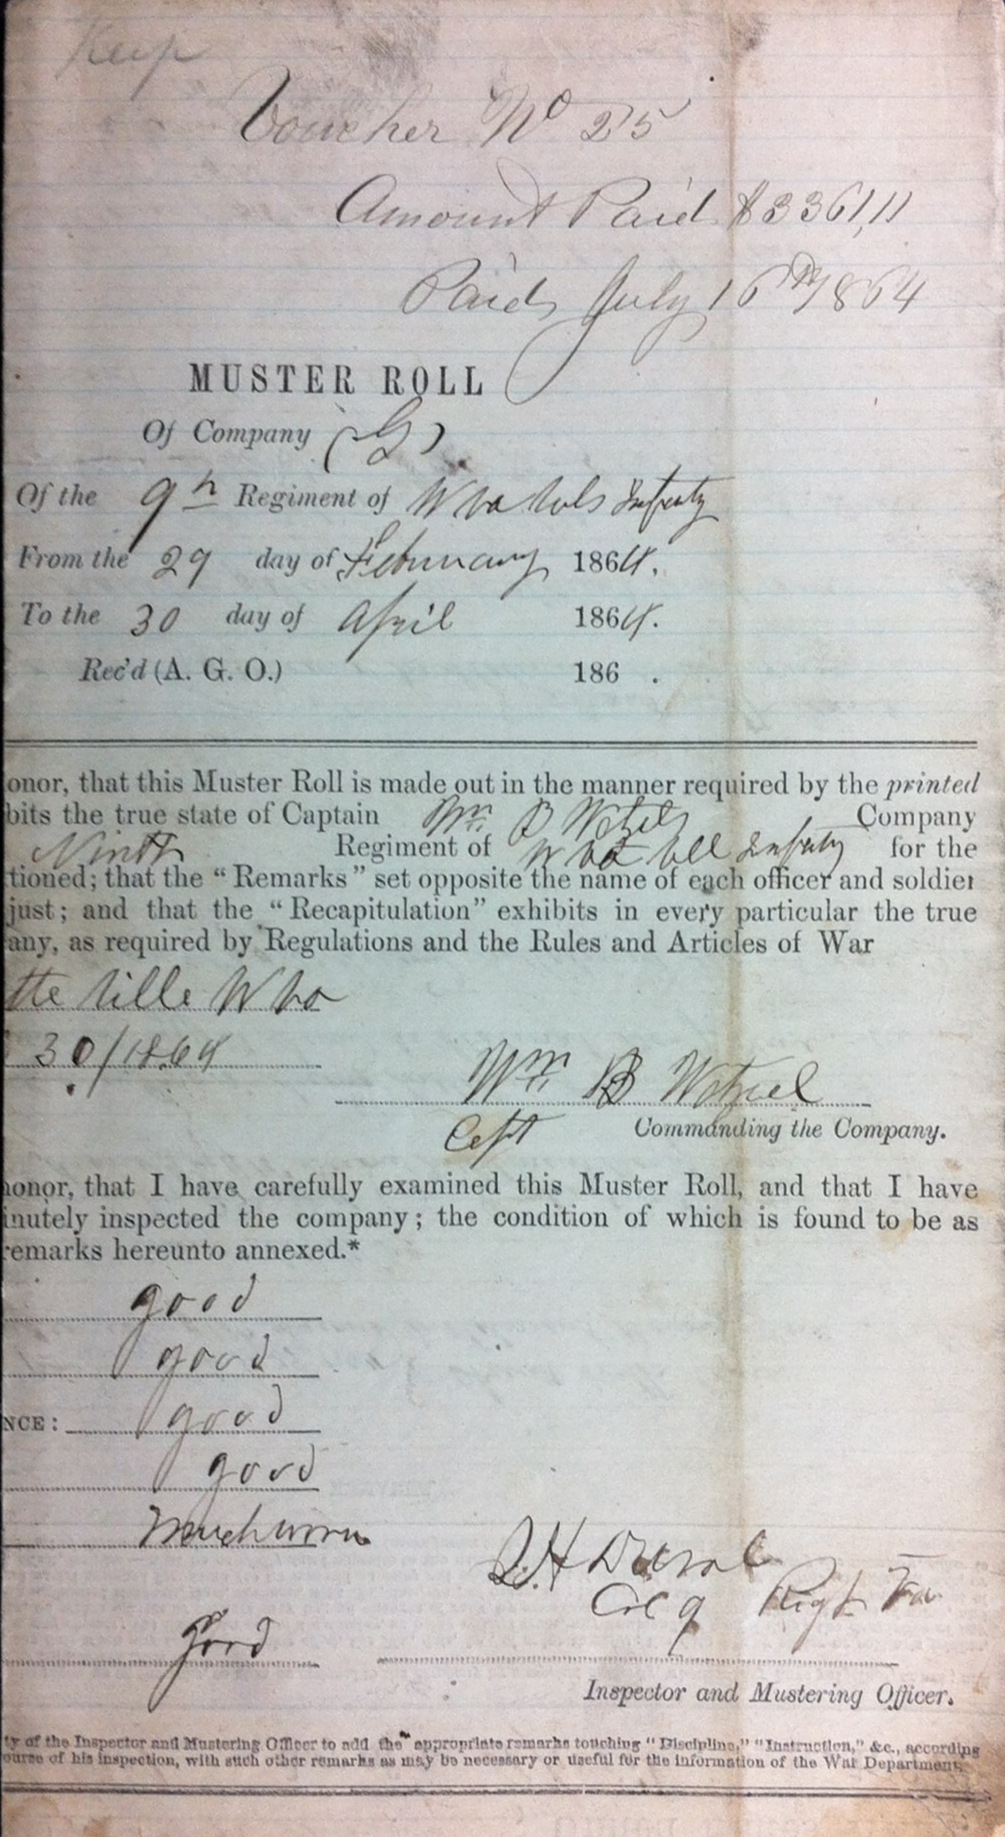 Keep
Voucher No 25
Amount Paid $3361,11
Paid July 16th 1864
MUSTER ROLL
Of Company (G)
Of the 9th Regiment of W Va Vols Infanty
From the 29 day of February 1864.
To the 30 day of April 1864.
Rec'd (A. G. O.) 186 .
onor, that this Muster Roll is made out in the manner required by the printed
bits the true state of Captain Wm. B Wetzel Company
Ninth Regiment of W Va Infanty for the
tioned; that the “Remarks” set opposite the name of each officer and soldier
just; and that the “Recapitulation” exhibits in every particular the true
any, as required by Regulations and the Rules and Articles of War
tte ville W Va
30/1864
Wm B Wetzel
Capt Commanding the Company.
honor, that I have carefully examined this Muster Roll, and that I have
inutely inspected the company; the condition of which is found to be as
remarks hereunto annexed.*
good
good
NCE: good
good
Much worn
I.H Duval
Col 9 Regt Va
good
Inspector and Mustering Officer.
ty of the Inspector and Mustering Officer to add the appropriate remarks touching “Discipline,” “Instruction,” &c., according
ourse of his inspection, with such other remarks as may be necessary or useful for the information of the War Department.